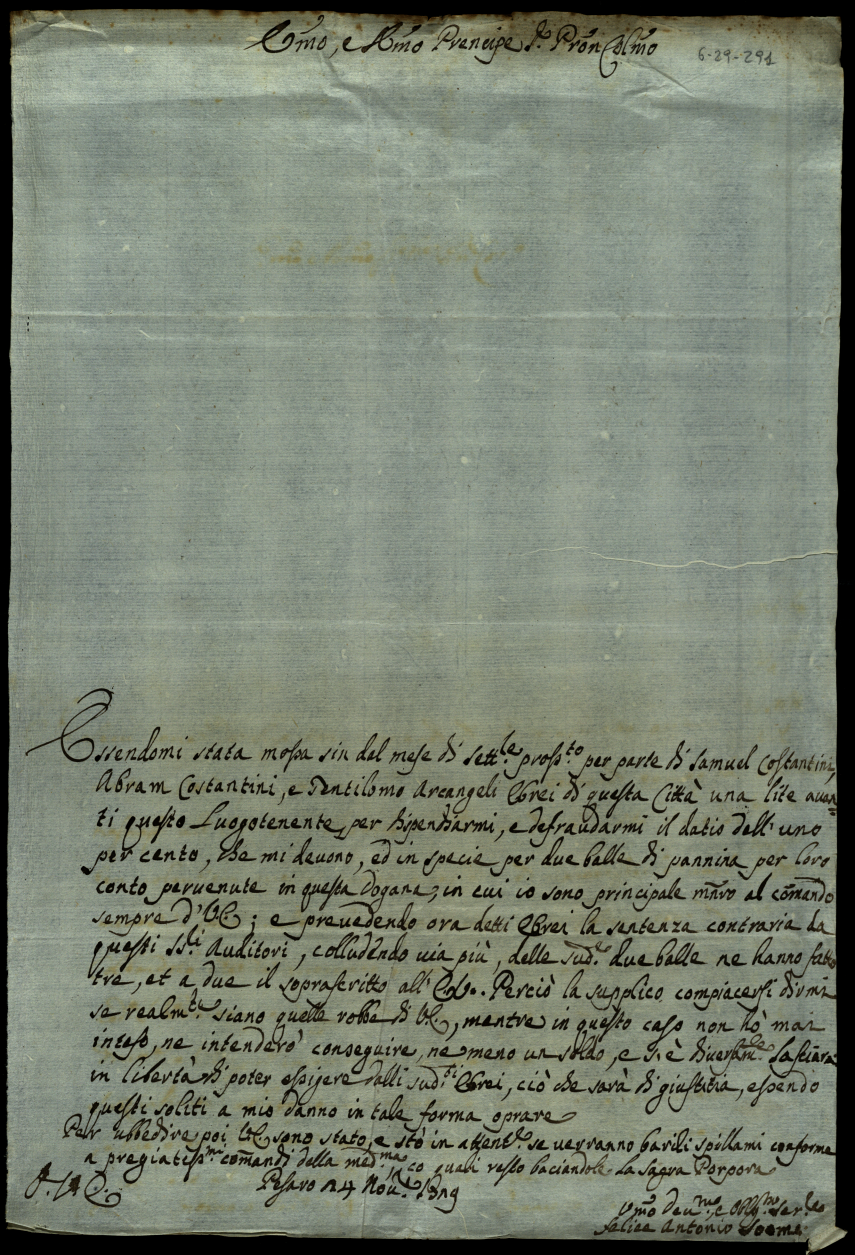 Emo, e Rmo Prencipe Sr. Pron Colmo
6-29-291
Essendomi stata mossa sin dal mese di Settbe. prossto per parte di Samuel Costantini,
Abram Costantini, e Gentilomo Arcangeli Ebrei di questa Città una lite auan=
ti questo Luogotenente per dispendiarmi, e defraudarmi il datio dell'uno
per cento, che mi deuono, ed in specie per due balle di pannina per loro
conto peruenute in questa Dogana, in cui io sono principale mnro al comando
sempre d'VE.; e preuedendo ora detti Ebrei la sentenza contraria da
questi SSri Auditori, colludendo uia più, delle sude. due balle ne hanno fatte
tre, et a due il soprascritto all' Perciò la supplico compiacersi dirmi
se realmte. siano quelle robbe di VE., mentre in questo caso non hò mai
inteso, ne intenderò conseguire, ne meno un soldo, e s'è diuersamte. lasciara
in libertà di poter esigere dalli sudti. Ebrei, ciò che sarà di giustitia, essendo
questi soliti a mio danno in tale forma oprare
Per ubbedire poi VE. sono stato, e stò in attente. se uerranno barili spillami conforme
a pregiatissmi comandi della medma, co quali resto baciandole la Sagra Porpora
Pesaro 24 Noue.
Vmo deumo, e obbgmo serre
Felice Antonio